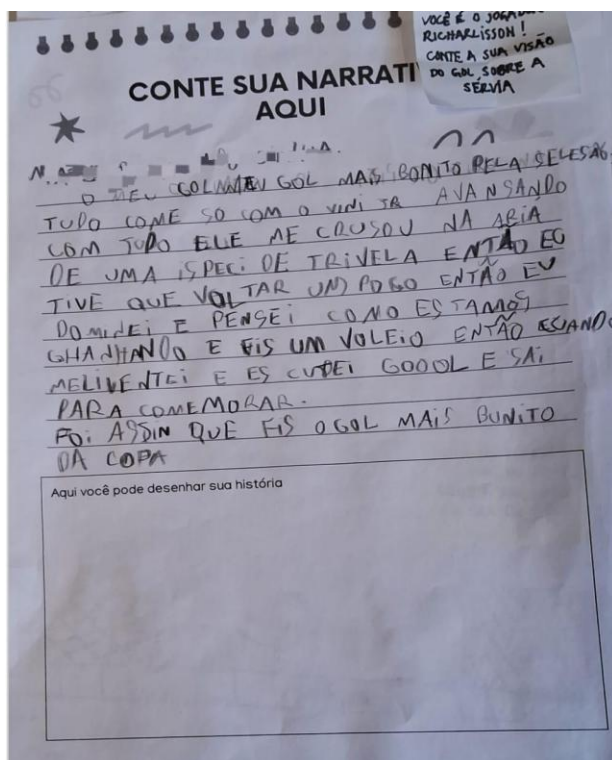 VOCÊ É O
RICHARLISSON!
CONTE A SUA VISÃO
DO GOL SOBRE A
SÉRVIA
CONTE SUA NARRATI
AQUI
O MEU GOL MAIS BONITO PELA SELESÃO
TUDO COMESO COM O VINI JR AVANSANDO
COM TUDO ELE ME CRUSOU NA ARIA
DE UMA ISPECI DE TRIVELA ENTÃO EU
TIVE QUE VOLTAR UM POGO ENTÃO EU
DOMINEI E PENSEI COMO ESTAMOS
GHANHANDO E FIS UM VOLEIO ENTÃO
MELIVENTEI E ESCUTEI GOOOL E SAI
PARA COMEMORAR.
FOI ASSIN QUE FIS O GOL MAIS BUNITO
DA COPA
Aqui você pode desenhar sua história